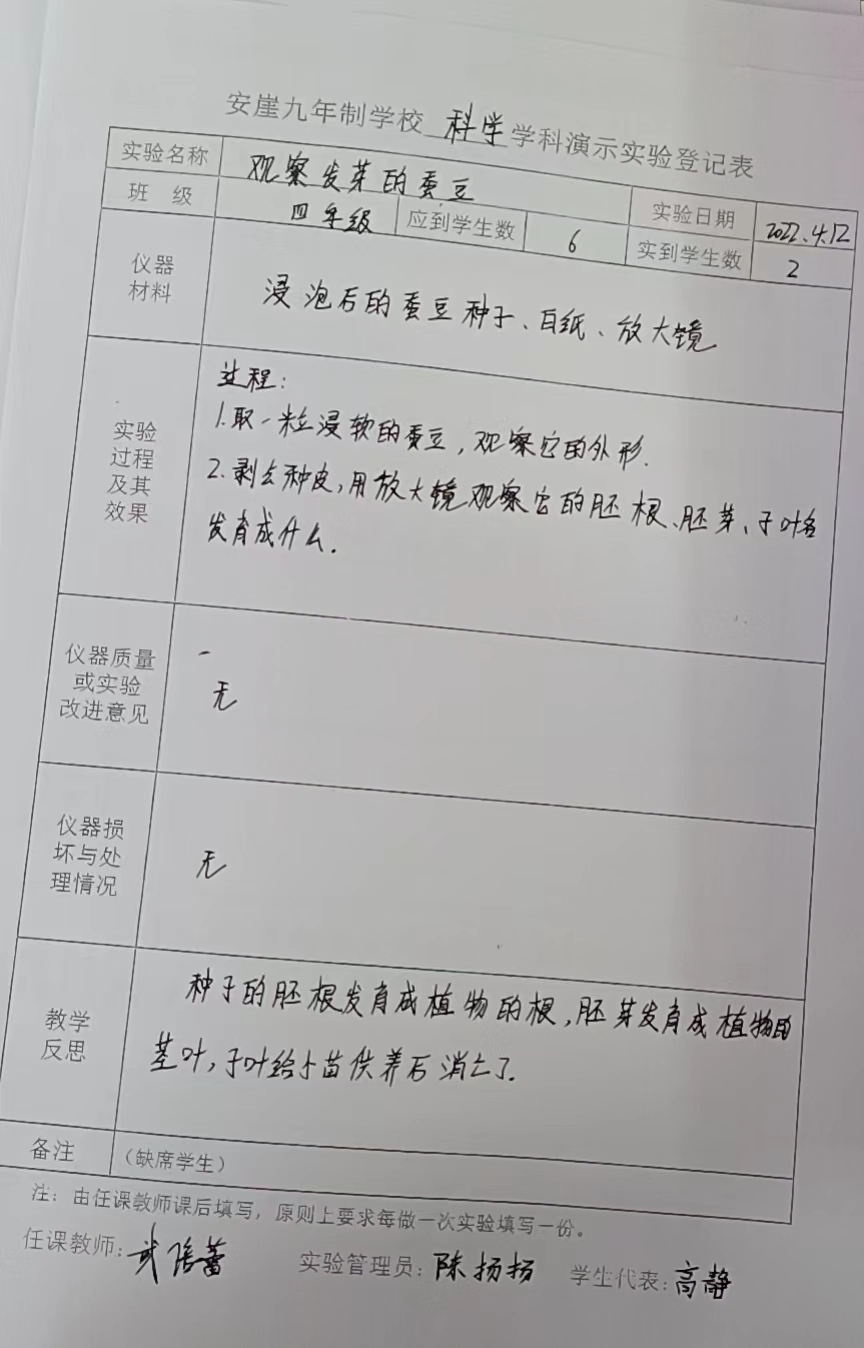 安崖九年制学校 科学 学科演示实验登记表
实验名称 观察发芽的蚕豆 实验日期 2022.4.12
班 级 四年级 应到学生数 6 实到学生数 2
仪器
材料
浸泡后的蚕豆种子、白纸、放大镜
实验
过程
及其
效果
过程:
1.取一粒浸软的蚕豆,观察它的外形.
2.剥去种皮,用放大镜观察它的胚根、胚芽、子叶各
发育成什么.
仪器质量
或实验
改进意见
无
仪器损
坏与处
理情况
无
教学
反思
种子的胚根发育成植物的根,胚芽发育成植物的
茎叶,子叶给小苗供养后消亡了.
备注 (缺席学生)
注:由任课教师课后填写,原则上要求每做一次实验填写一份。
任课教师:武培蕾 实验管理员:陈扬扬 学生代表:高静